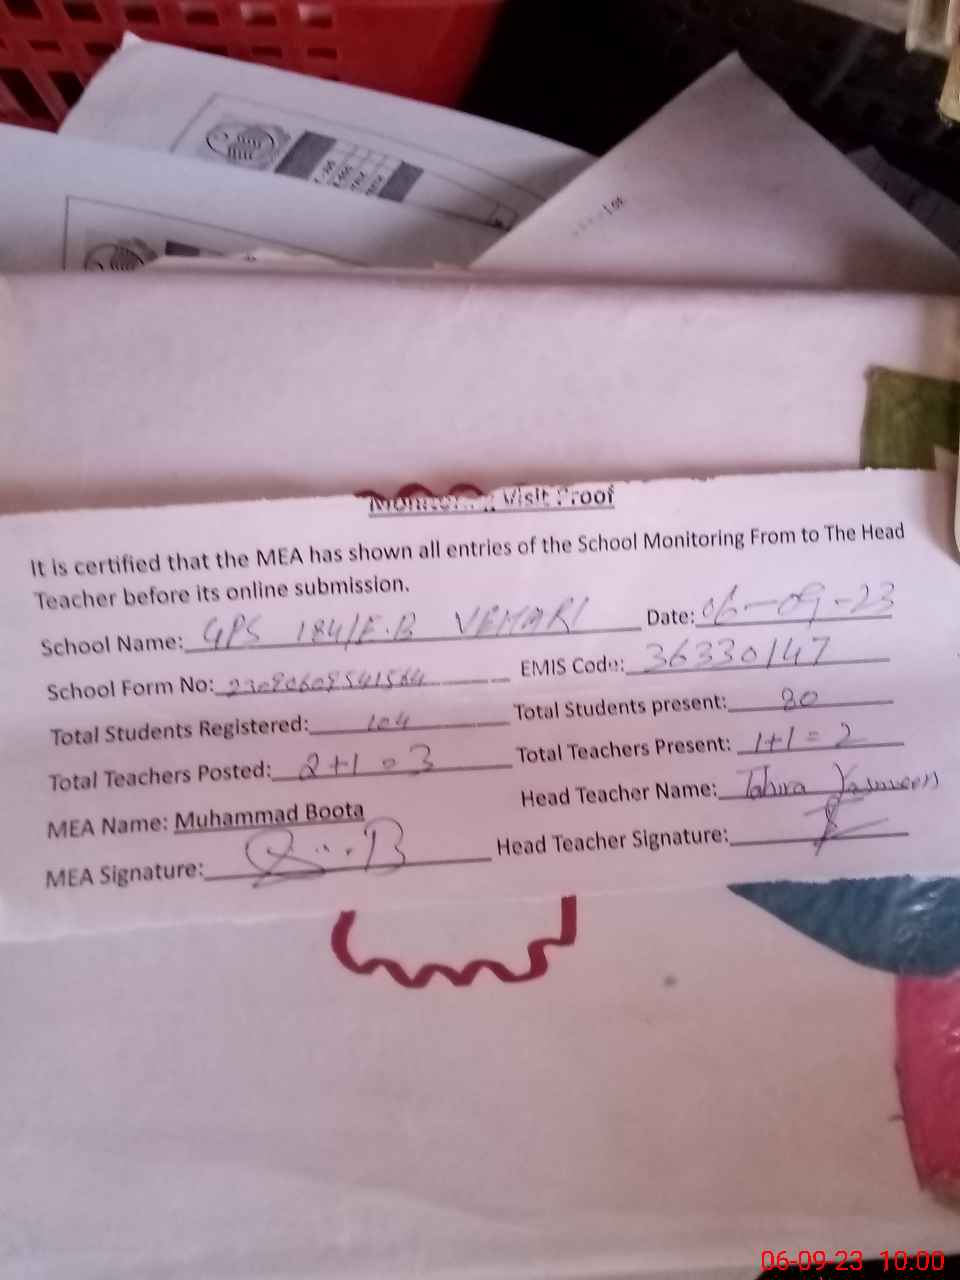 Monitoring Visit Proof
It is certified that the MEA has shown all entries of the School Monitoring From to The Head
Teacher before its online submission.
School Name: GPS 184/E.B VEHARI Date: 06-09-23
School Form No: EMIS Code: 36330147
Total Students Registered: 104 Total Students present: 80
Total Teachers Posted: 2+1=3 Total Teachers Present: 1+1=2
MEA Name: Muhammad Boota Head Teacher Name: Tahira Yasmeen
MEA Signature: Head Teacher Signature:
06-09-23 10:00